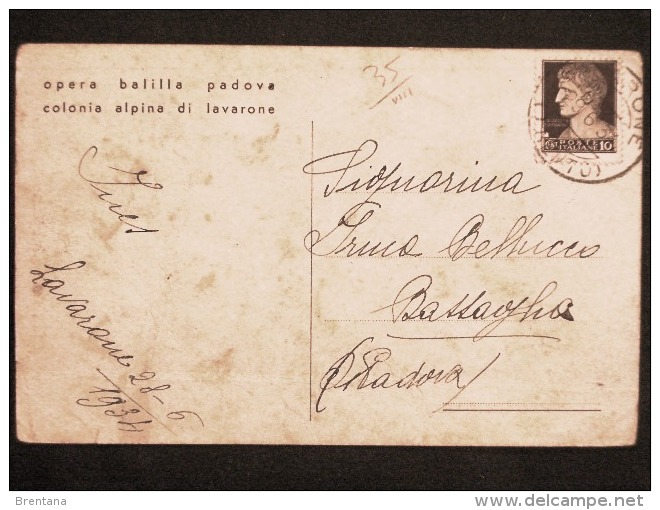 opera balilla padova
colonia alpina di lavarone
35
VIII
POSTE
ITALIANE 10
Ines
Lavarone 28-6
1934
Signorina
Irma Bellucco
Battaglia
(Padova)
Brentana
delcampe.net